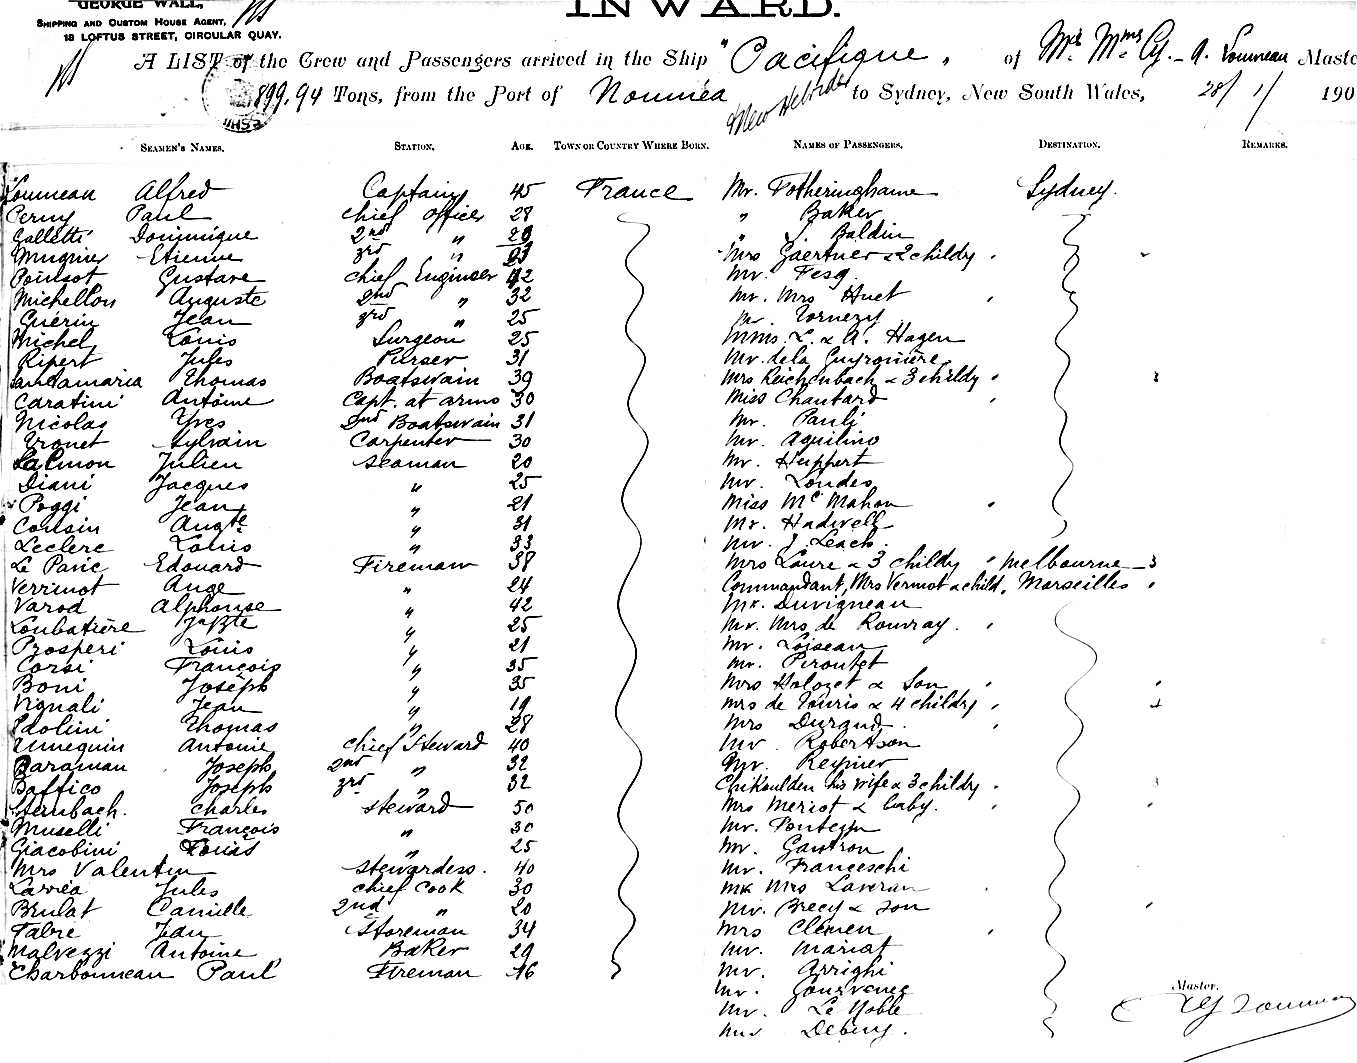 GEORGE WALL,
SHIPPING AND CUSTOM HOUSE AGENT,
18 LOFTUS STREET, CIRCULAR QUAY.
INWARD.
A LIST of the Crew and Passengers arrived in the Ship "Pacifique" of Master
899.94 Tons, from the Port of Nouméa New Hebrides to Sydney, New South Wales, 28/1/ 190
SEAMEN'S NAMES. STATION. AGE. TOWN OR COUNTRY WHERE BORN. NAMES OF PASSENGERS. DESTINATION. REMARKS.
Alfred Captain 45 France Mr. Fotheringhame Sydney.
Paul Chief officer 28 " Baker
Colletti Dominique 2nd " " Baldin
Mugnier Etienne 3rd " Mrs Gaertner & 2 childr
Poinsot Gustave Chief Engineer 42 Mr. Fesq.
Michellon Auguste 2nd " 32 Mr. Mrs Huet
Guérin Jean 3rd " 25 Mr
Michel Louis Surgeon 25 L. & A. Hagen
Ripert Jules Purser 31 Mr. de la Guyronière
Santamaria Thomas Boatswain 39 Mrs Reichenbach & 3 childr
Caratini Antoine Capt. at arms 30 Miss Chautard
Nicolas Yves 2nd Boatswain 31 Mr. Pauli
Tronet Sylvain Carpenter 30 Mr. Aquilino
Salmon Julien Seaman 20 Mr. Huppert
Diani Jacques " 25 Mr. Londes
Poggi Jean " 21 Miss Mc Mahon
Cousin Augte " 31 Mr. Hadwell
Leclere Louis " 33 Mr. J. Leach.
Le Panic Edouard Fireman 38 Mrs Laure & 3 childr Melbourne 3
Verrimot Ange " 24 Commandant, Mrs Vermot & child, Marseilles
Varod Alphonse " 42 Mr. Duvigneau
Loubatière " 25 Mr. Mrs de Rouvray.
Prosperi Louis " 21 Mr. Loiseau
Corsi François " 35 Mr. Peroutet
Boni Joseph " 35 Mrs Halozet & Son
Vignali Jean " 19 Mrs de Touris & 4 childr 4
Paolini Thomas " 28 Mrs Durand.
Antoine Chief Steward 40 Mr. Robertson
Baraman Joseph 2nd " 32 Mr. Reynier
Baffico Joseph 3rd " 32 his wife & 3 childr
Steinbach. Charles Steward 50 Mrs Meriot & baby.
Muselli François " 30 Mr.
Giacobini Louis " 25 Mr. Gautron
Mrs Valentin Stewardess. 40 Mr. Franceschi
Larréa Jules Chief Cook 30 Mr Mrs Laveran
Brulat Camille 2nd " 20 Mr. Brecy & Son
Fabre Jean Storeman 34 Mrs Clemen
Malvezzi Antoine Baker 29 Mr. Mariot
Charbonneau Paul Fireman 46 Mr. Arrighi
Mr.
Mr. Le Noble
Debeny.
Master.